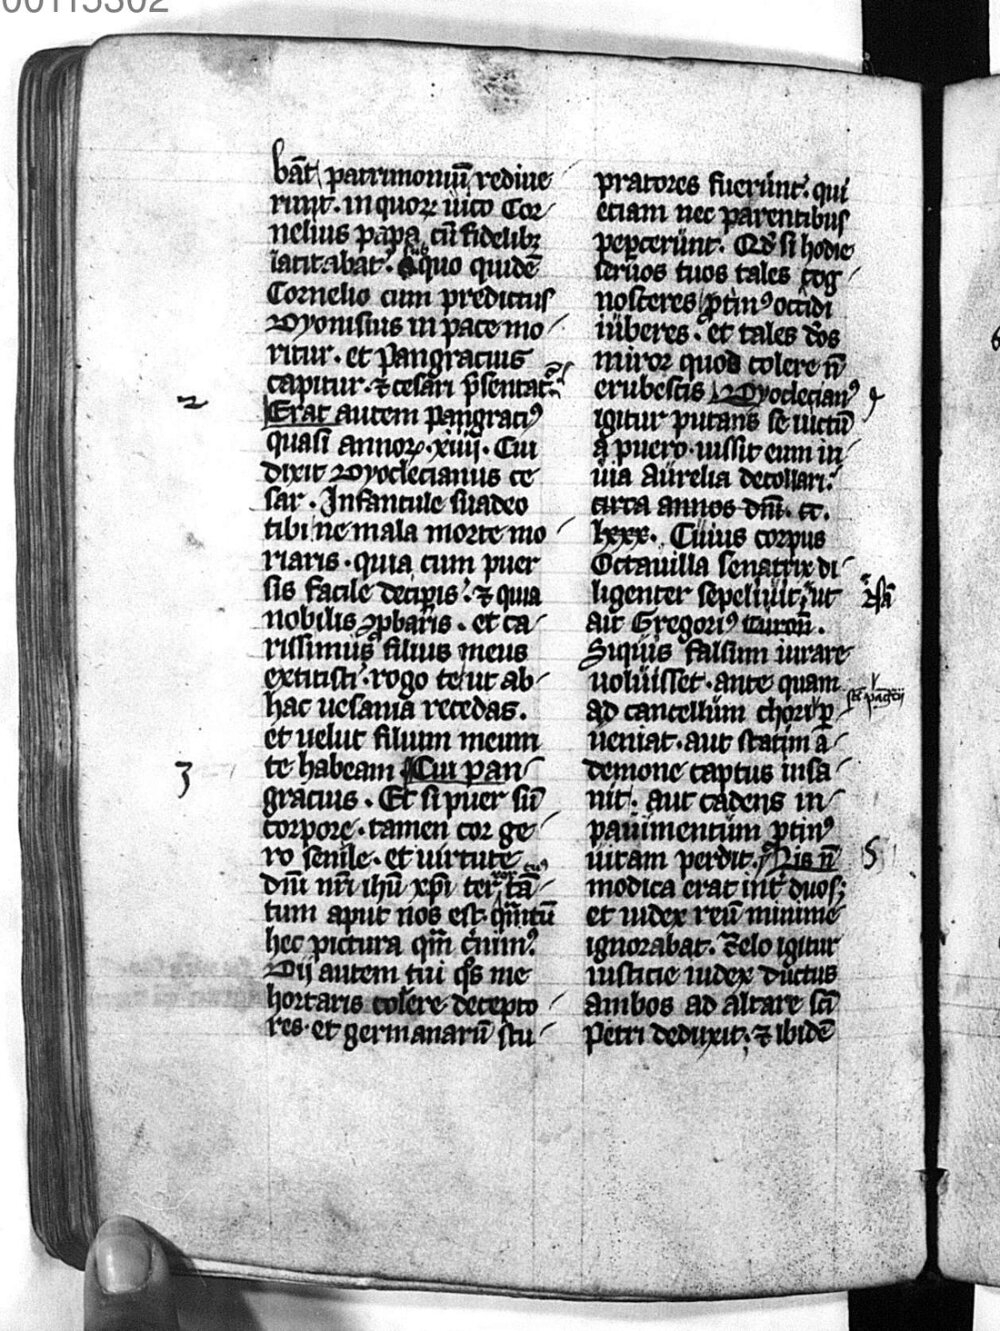 00115302
bāt patrimoniū rediue
runt. in quoꝝ uico Cor
nelius papa cū fidelibꝫ
latitabat. sub quo quidē
Cornelio cum predictus
Dyonisius in pace mo
ritur. et Pangracius
capitur. ⁊ cesari p̄sentat᷑.
2
Erat autem pangraciꝰ
quasi annoꝝ .xiiij. Cui
dixit Dyoclecianus ce
sar. Infantule suadeo
tibi ne mala morte mo
riaris. quia cum puer
sis facile decipis. ⁊ quia
nobilis ꝓbaris. et ca
rissimus filius meus
extitisti. rogo te ut ab
hac uesania recedas.
et uelut filium meum
3
te habeam Cui pan
gracius. Et si puer sū
corpore. tamen cor ge
ro senile. et uirtute
dn̄i nr̄i ihū xp̄i terror tuꝰ tā
tum aput nos est. qn̄tū
hec pictura qm̄
Dij autem tui qͦs me
hortaris colere decepto
res. et germanarū stu
pratores fuerunt. qui
etiam nec parentibus
pepercerunt. Qd̓ si hodie
seruos tuos tales cog
nosceres ꝓtinꝰ occidi
iuberes. et tales dōs
miror quod colere n̄
erubescis Dyoclecianꝰ
igitur putans se uictū
a puero. iussit eum in
uia Aurelia decollari.
circa annos dn̄i. cc.
lxxx. Cuius corpus
Octauilla senatrix di
ligenter sepeliuit. ut
ait Gregoriꝰ turoñ.
Siquis falsum iurare
uoluisset. ante quam
ad cancellum chori ꝑ
ueniat. aut statim a
demone captus insa
nit. aut cadens in
pauimentum ꝓtinꝰ
5
uitam perdit. Lis n̄
modica erat int̓ duos;
et iudex reū minime
ignorabat. Zelo igitur
iusticie iudex ductus
ambos ad altare sc̄i
Petri deduxit. ⁊ ibidē